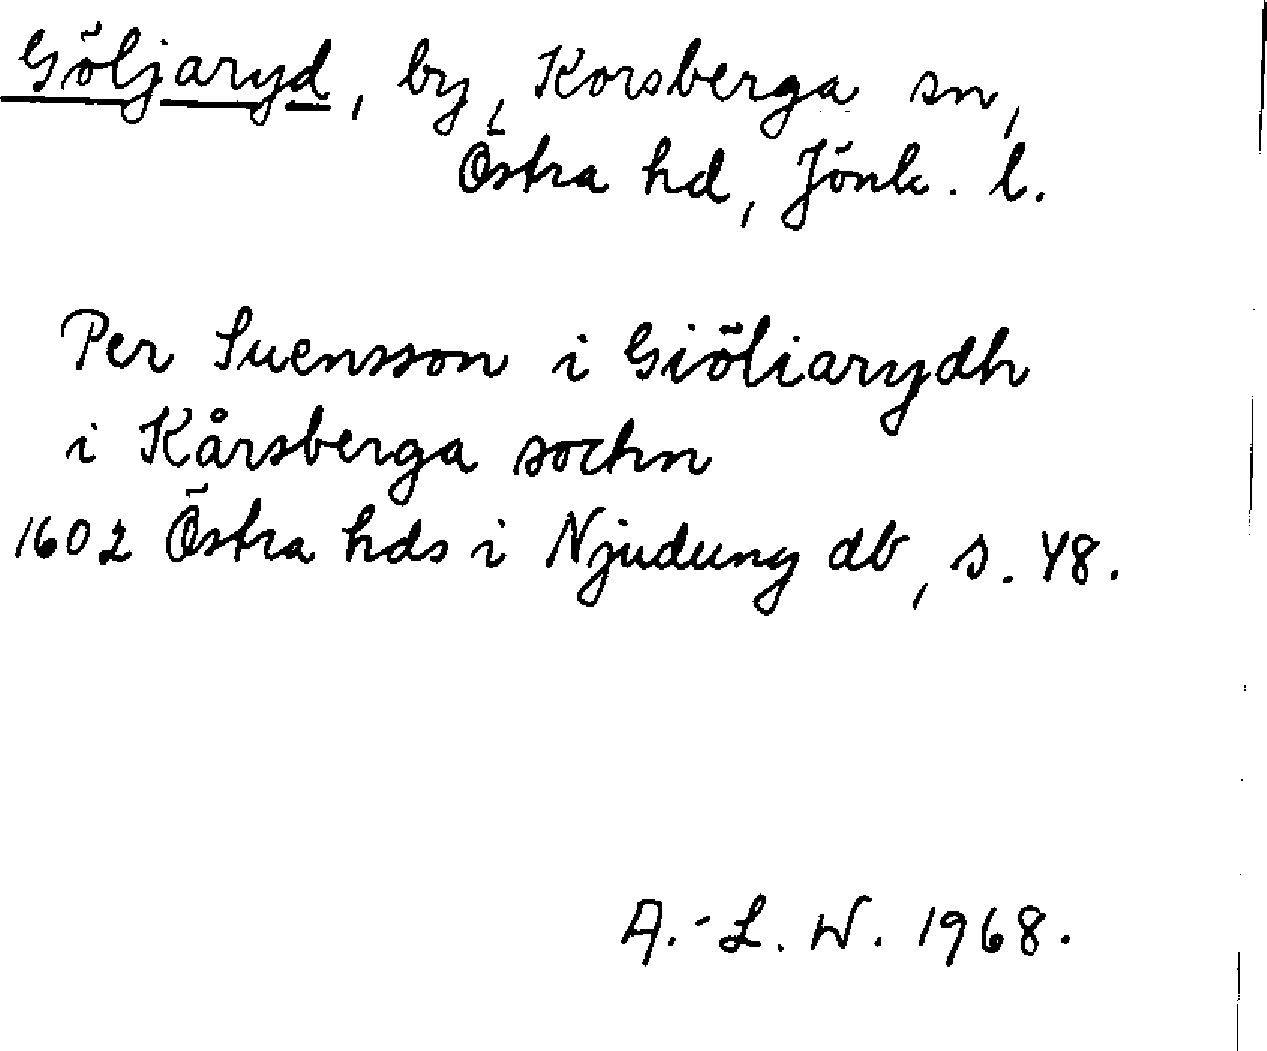 Göljaryd, by, Korsberga sn,
Östra hd, Jönk. l.
Per Suensson i Giöliarydh
i Kårsberga sochn
1602 Östra hds i Njudung db, s. 48.
A.-L. W. 1968.